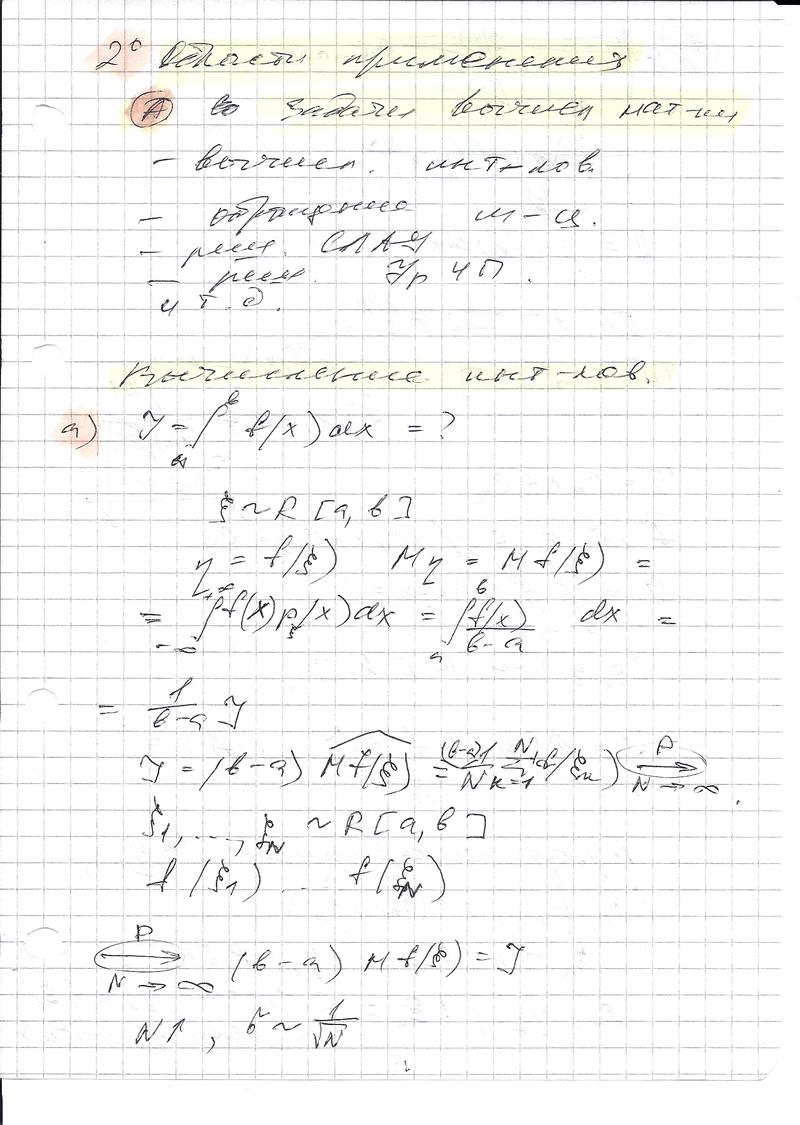 2° Области применения
(A) задачи вычисл мат-ки
- вычисл. инт-лов.
- обращение м-ц.
- реш. СЛАУ
- реш. Ур ЧП.
и т.д.
Вычисление инт-лов.
а) J = ∫_a^b f(x) dx = ?
ξ ~ R [a, b]
η = f(ξ) Mη = M f(ξ) =
= ∫_{-∞}^{+∞} f(x) p_ξ(x) dx = ∫_a^b f(x)/(b-a) dx =
= 1/(b-a) J
J = (b-a) \widehat{M f(ξ)} = (b-a) 1/N Σ_{k=1}^{N} f(ξ_k) →^P_{N→∞}
ξ_1, ..., ξ_N ~ R [a, b]
f(ξ_1) ... f(ξ_N)
→^P_{N→∞} (b-a) M f(ξ) = J
N↑, ~ 1/√N